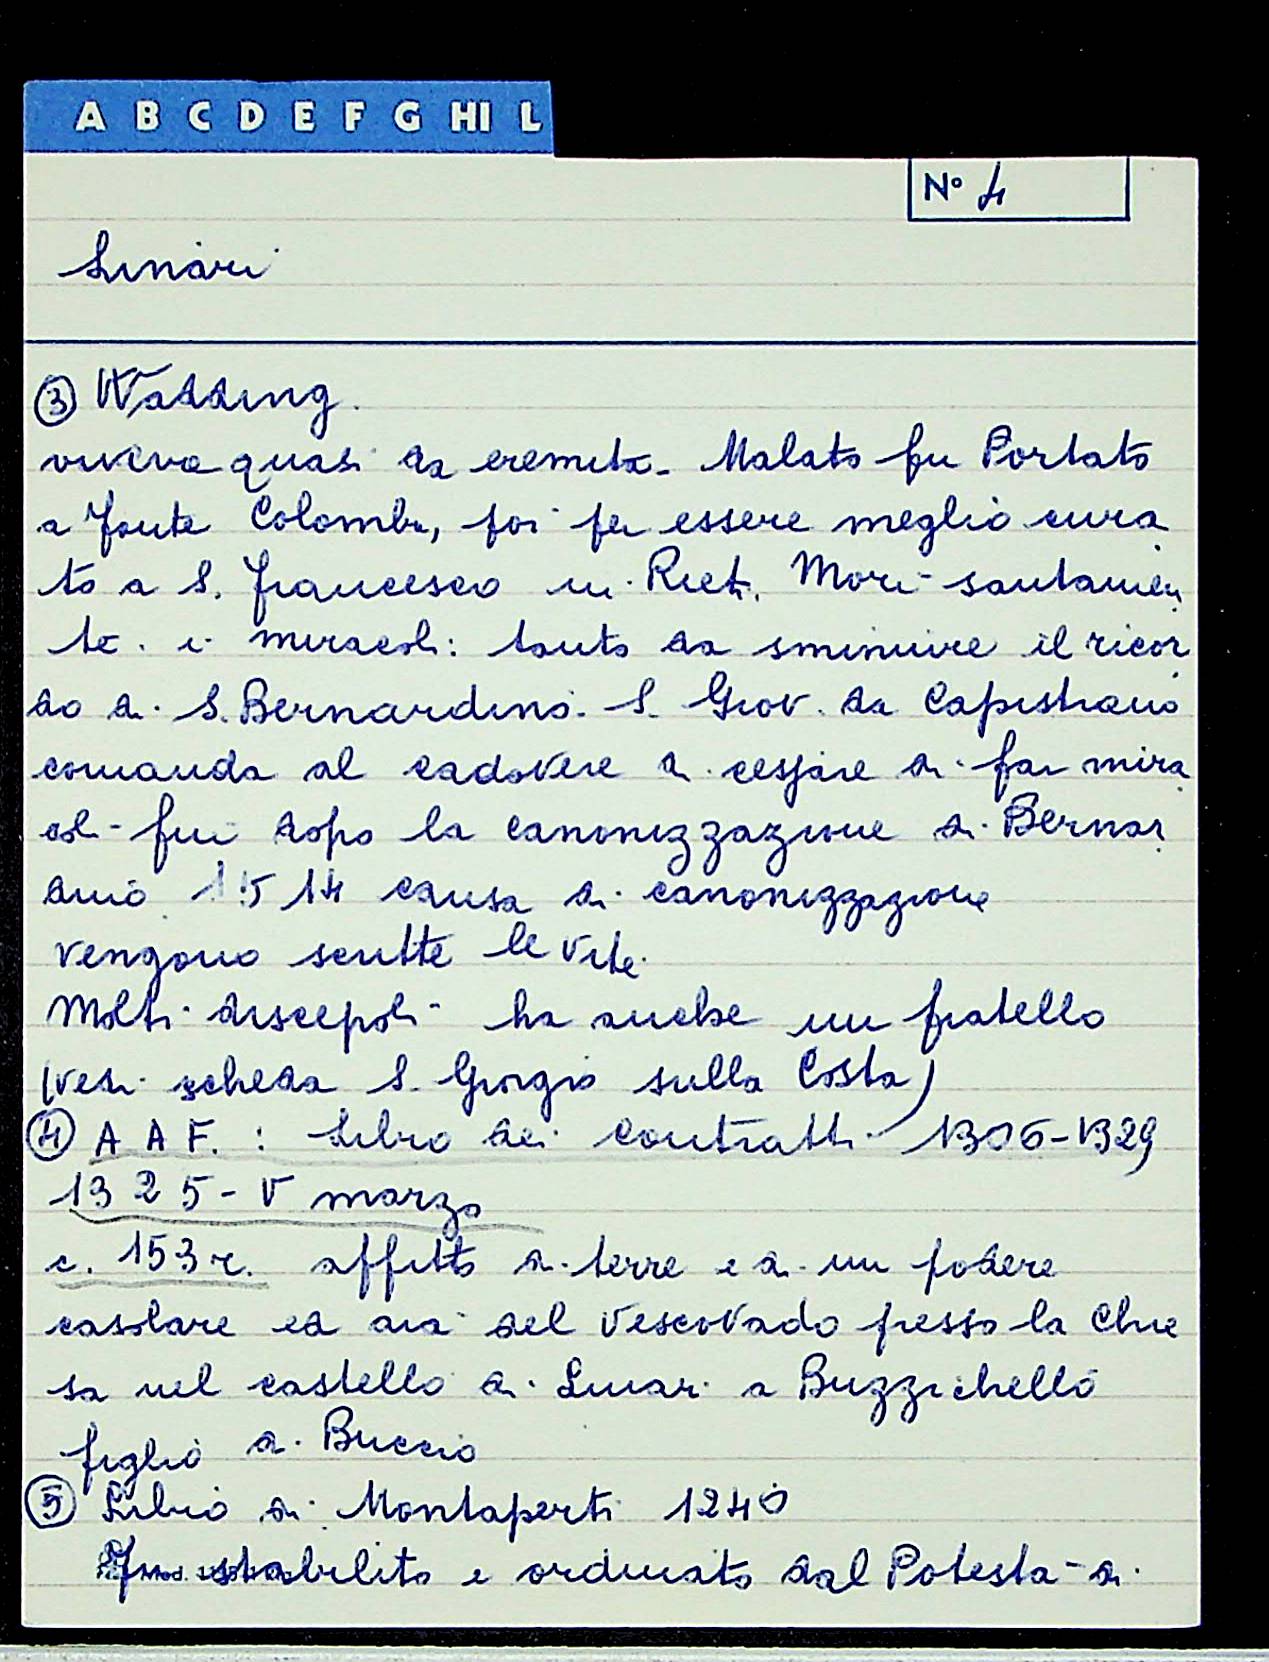 A B C D E F G HI L
N° 4
Linari
③ Wadding.
viveva quasi da eremita. Malato fu Portato
a Fonte Colombo, poi per essere meglio cura
to a S. Francesco in Rieti. Morì santamen
te. i miracoli: tanto da sminuire il ricor
do di S. Bernardino. S. Giov. da Capestrano
comanda al cadavere di cessare di far mira
coli fin dopo la canonizzazione di Bernar
dino. 1514 causa di canonizzazione
vengono scritte le vite.
Molti discepoli ha anche un fratello
(vedi scheda S. Giorgio sulla Costa)
④ A A F. : Libro dei contratti 1306-1329
1325 - V marzo
c. 153 r. affitto di terre e di un podere
casolare ed aia del Vescovado presso la Chie
sa nel castello di Linari a Buzzichello
figlio di Buccio
⑤ Libro di Montaperti 1240
Fu stabilito e ordinato dal Potestà di